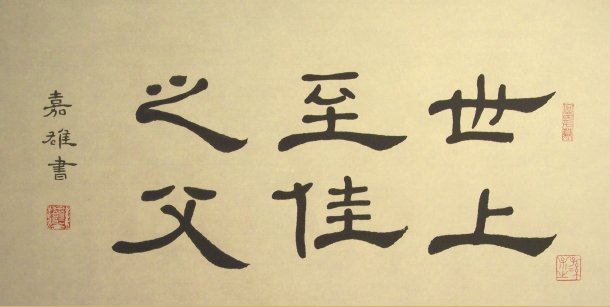 世上
至佳
之父
嘉雄書